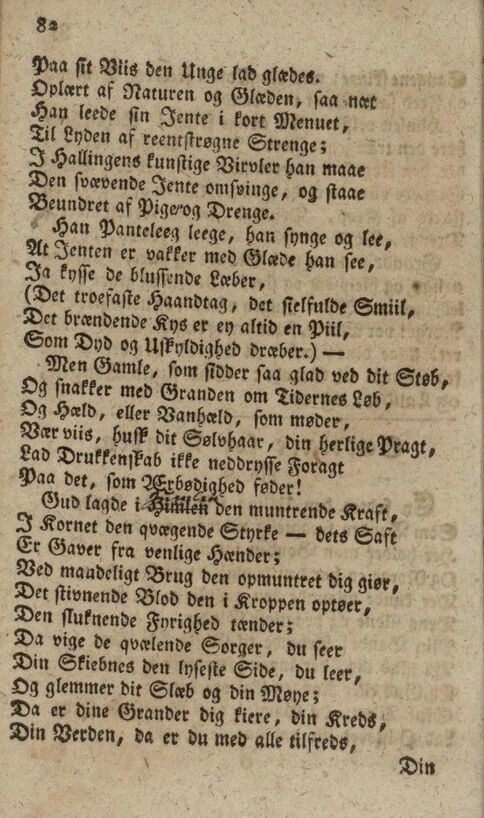 82
Paa sit Viis den Unge lad glædes.
Oplært af Naturen og Glæden, saa næt
Han leede sin Jente i kort Menuet,
Til Lyden af reentstrøgne Strenge;
I Hallingens kunstige Virvler han maae
Den svævende Jente omsvinge, og staae
Beundret af Pige og Drenge.
Han Panteleeg leege, han synge og lee,
At Jenten er vakker med Glæde han see,
Ja kysse de blussende Læber,
(Det troefaste Haandtag, det sielfulde Smiil,
Det brændende Kys er ey altid en Piil,
Som Dyd og Uskyldighed dræber.) —
Men Gamle, som sidder saa glad ved dit Støb,
Og snakker med Granden om Tidernes Løb,
Og Hæld, eller Vanhæld, som møder,
Vær viis, husk dit Sølvhaar, din herlige Pragt,
Lad Drukkenskab ikke neddrysse Foragt
Paa det, som Ærbødighed føder!
Gud lagde i Himlen den muntrende Kraft,
I Kornet den qvægende Styrke — dets Saft
Er Gaver fra venlige Hænder;
Ved maadeligt Brug den opmuntret dig giør,
Det stivnende Blod den i Kroppen optøer,
Den sluknende Fyrighed tænder;
Da vige de qvælende Sorger, du seer
Din Skiebnes den lyseste Side, du leer,
Og glemmer dit Slæb og din Møye;
Da er dine Grander dig kiere, din Kreds,
Din Verden, da er du med alle tilfreds,
Din